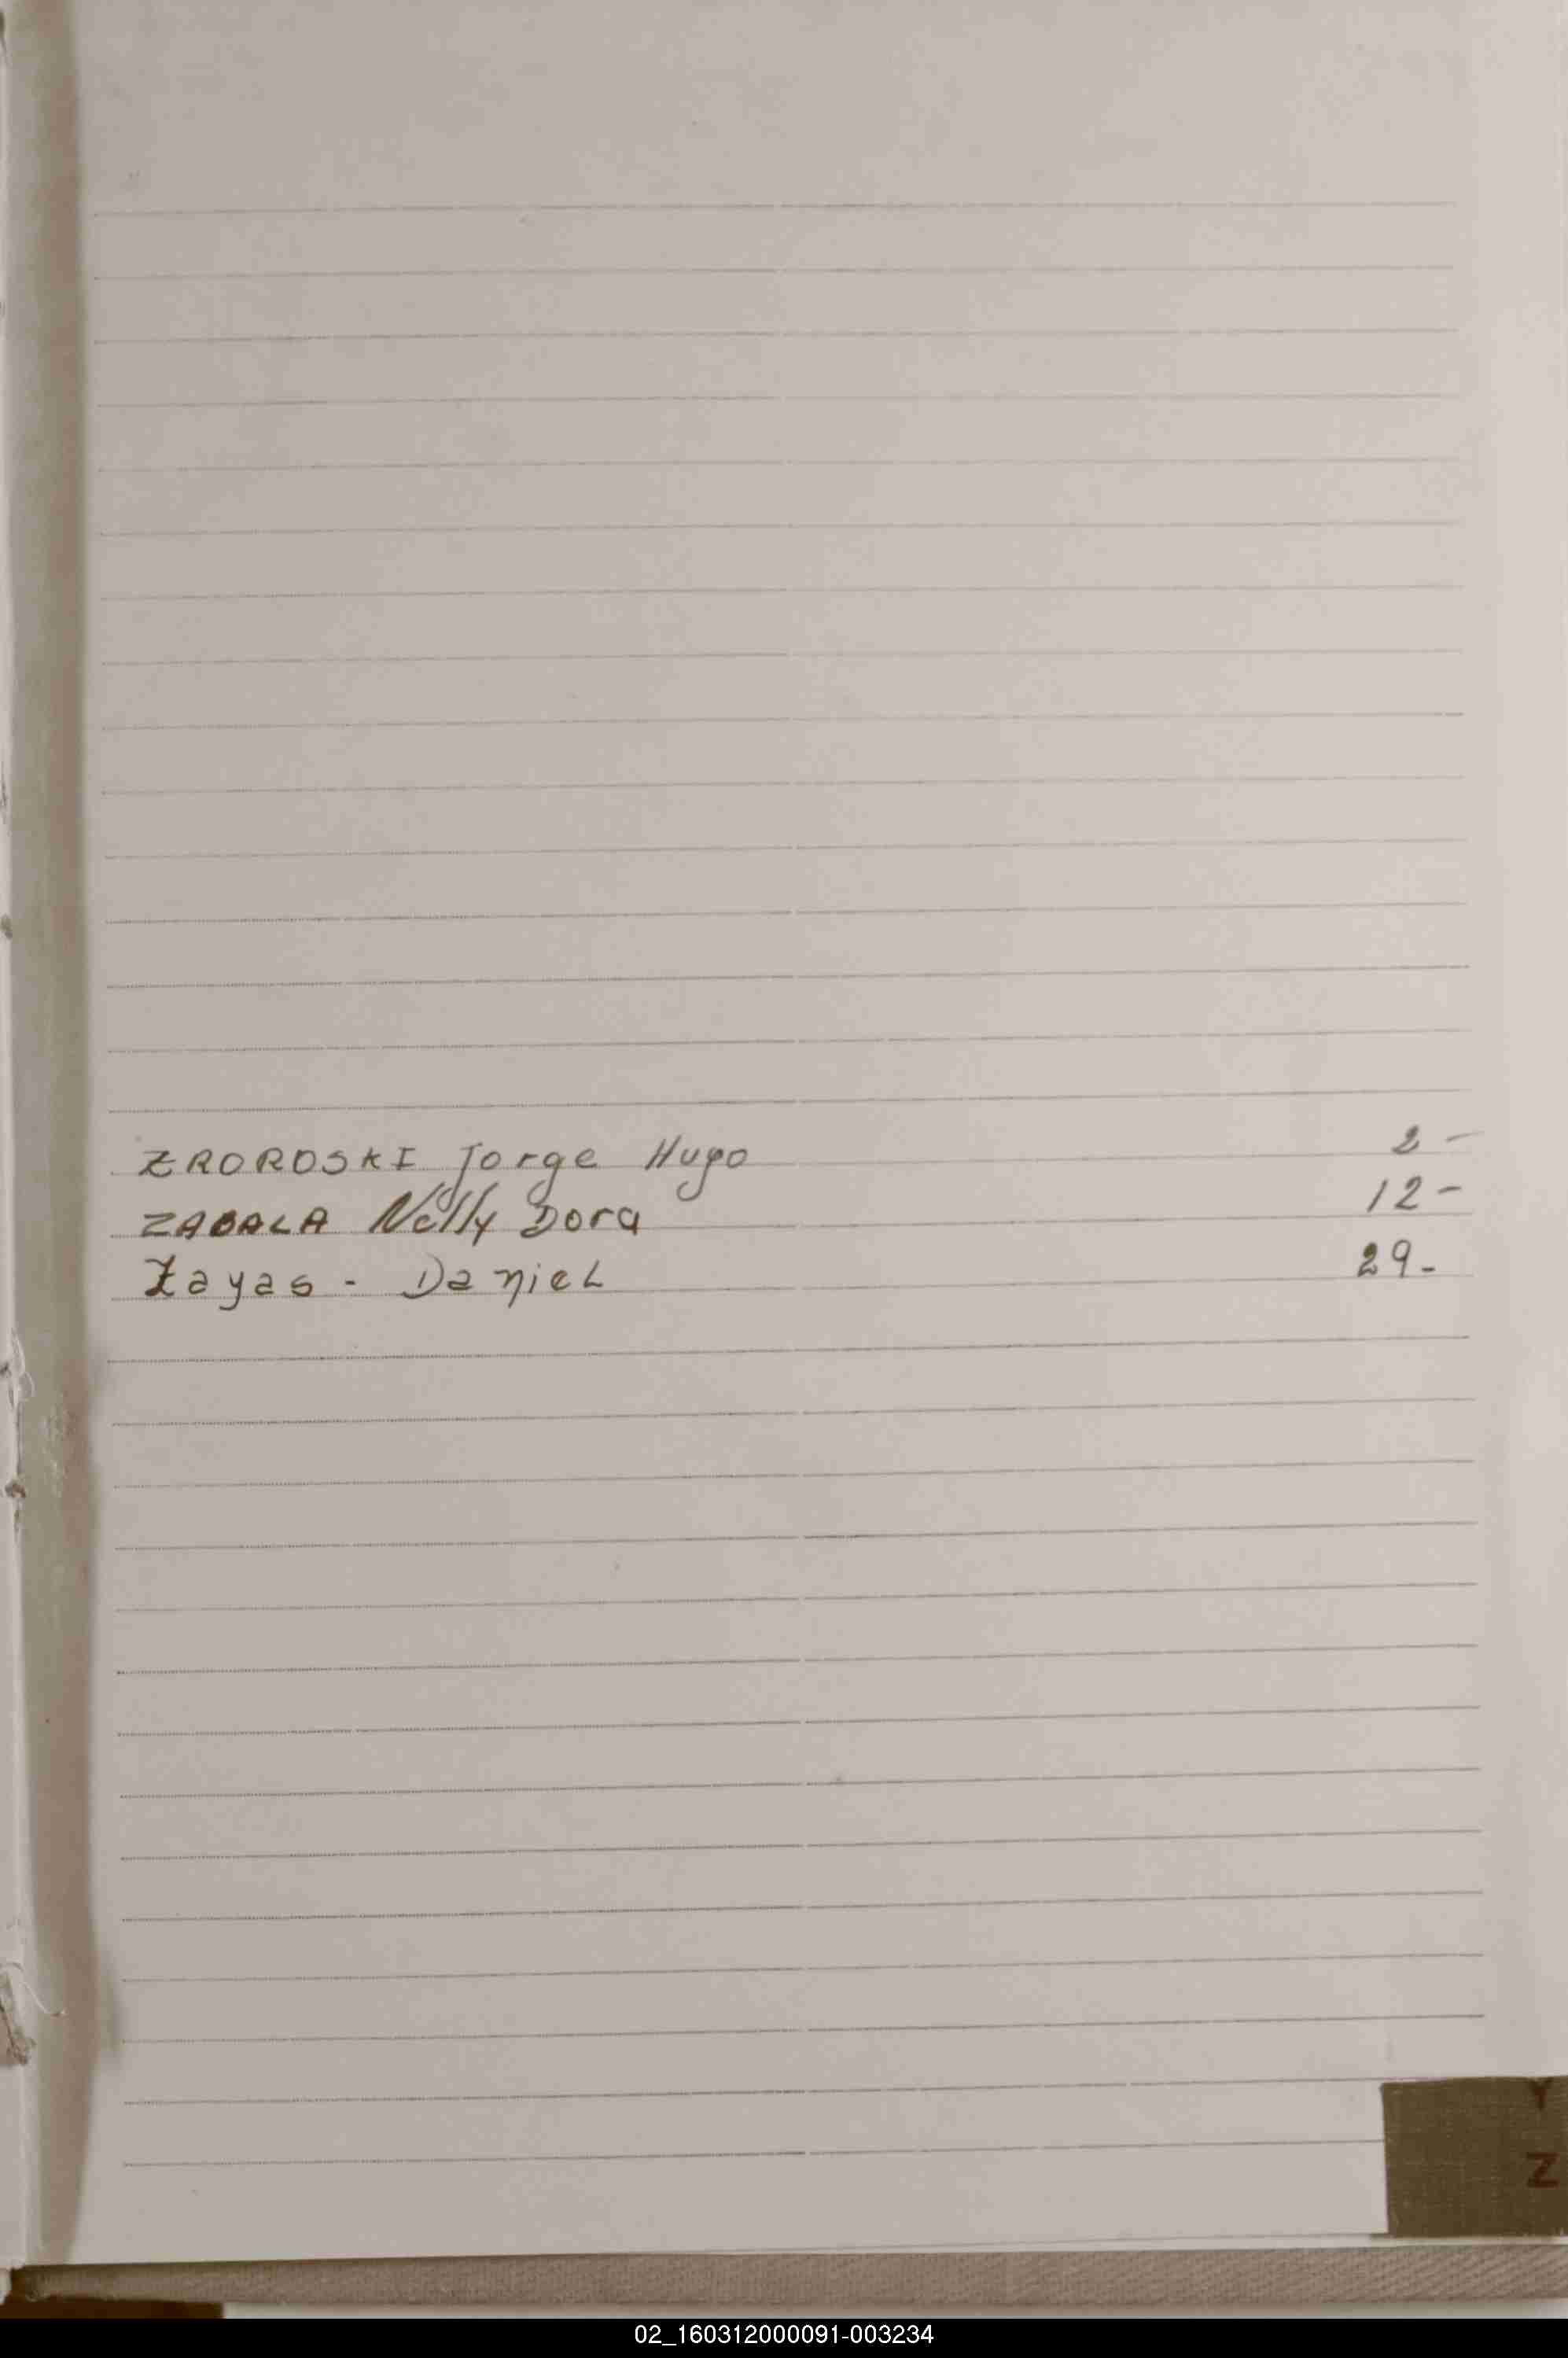 ZROROSKI Jorge Hugo 2 -
ZABALA Nelly Dora 12 -
Zayas - Daniel 29 -
Y
Z
02_160312000091-003234